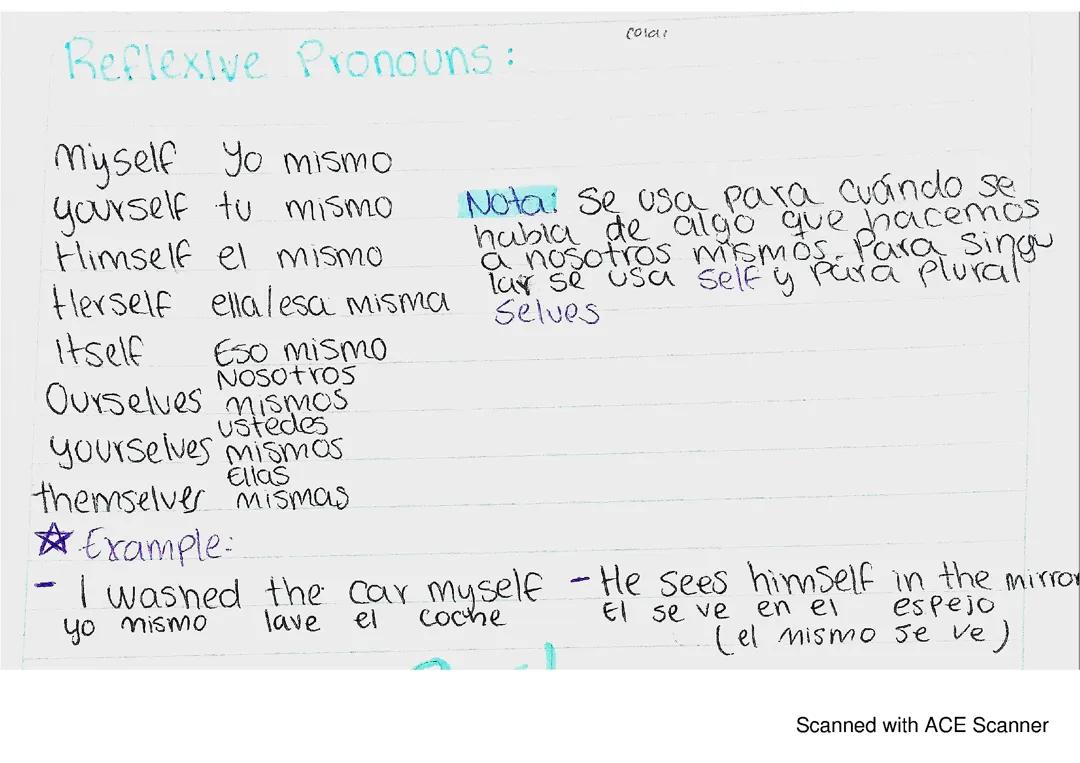 Reflexive Pronouns:
Myself yo mismo
yourself tu mismo
Himself el mismo
Herself ella/esa misma
Itself Eso mismo
Ourselves Nosotros mismos
yourselves ustedes mismos
themselves Ellas mismas
Nota: Se usa para cuándo se
habla de algo que hacemos
a nosotros mismos. Para singu
lar se usa self y para plural
Selves
Example:
- I washed the car myself
yo mismo lave el coche
- He sees himself in the mirror
El se ve en el espejo
(el mismo se ve)
Scanned with ACE Scanner